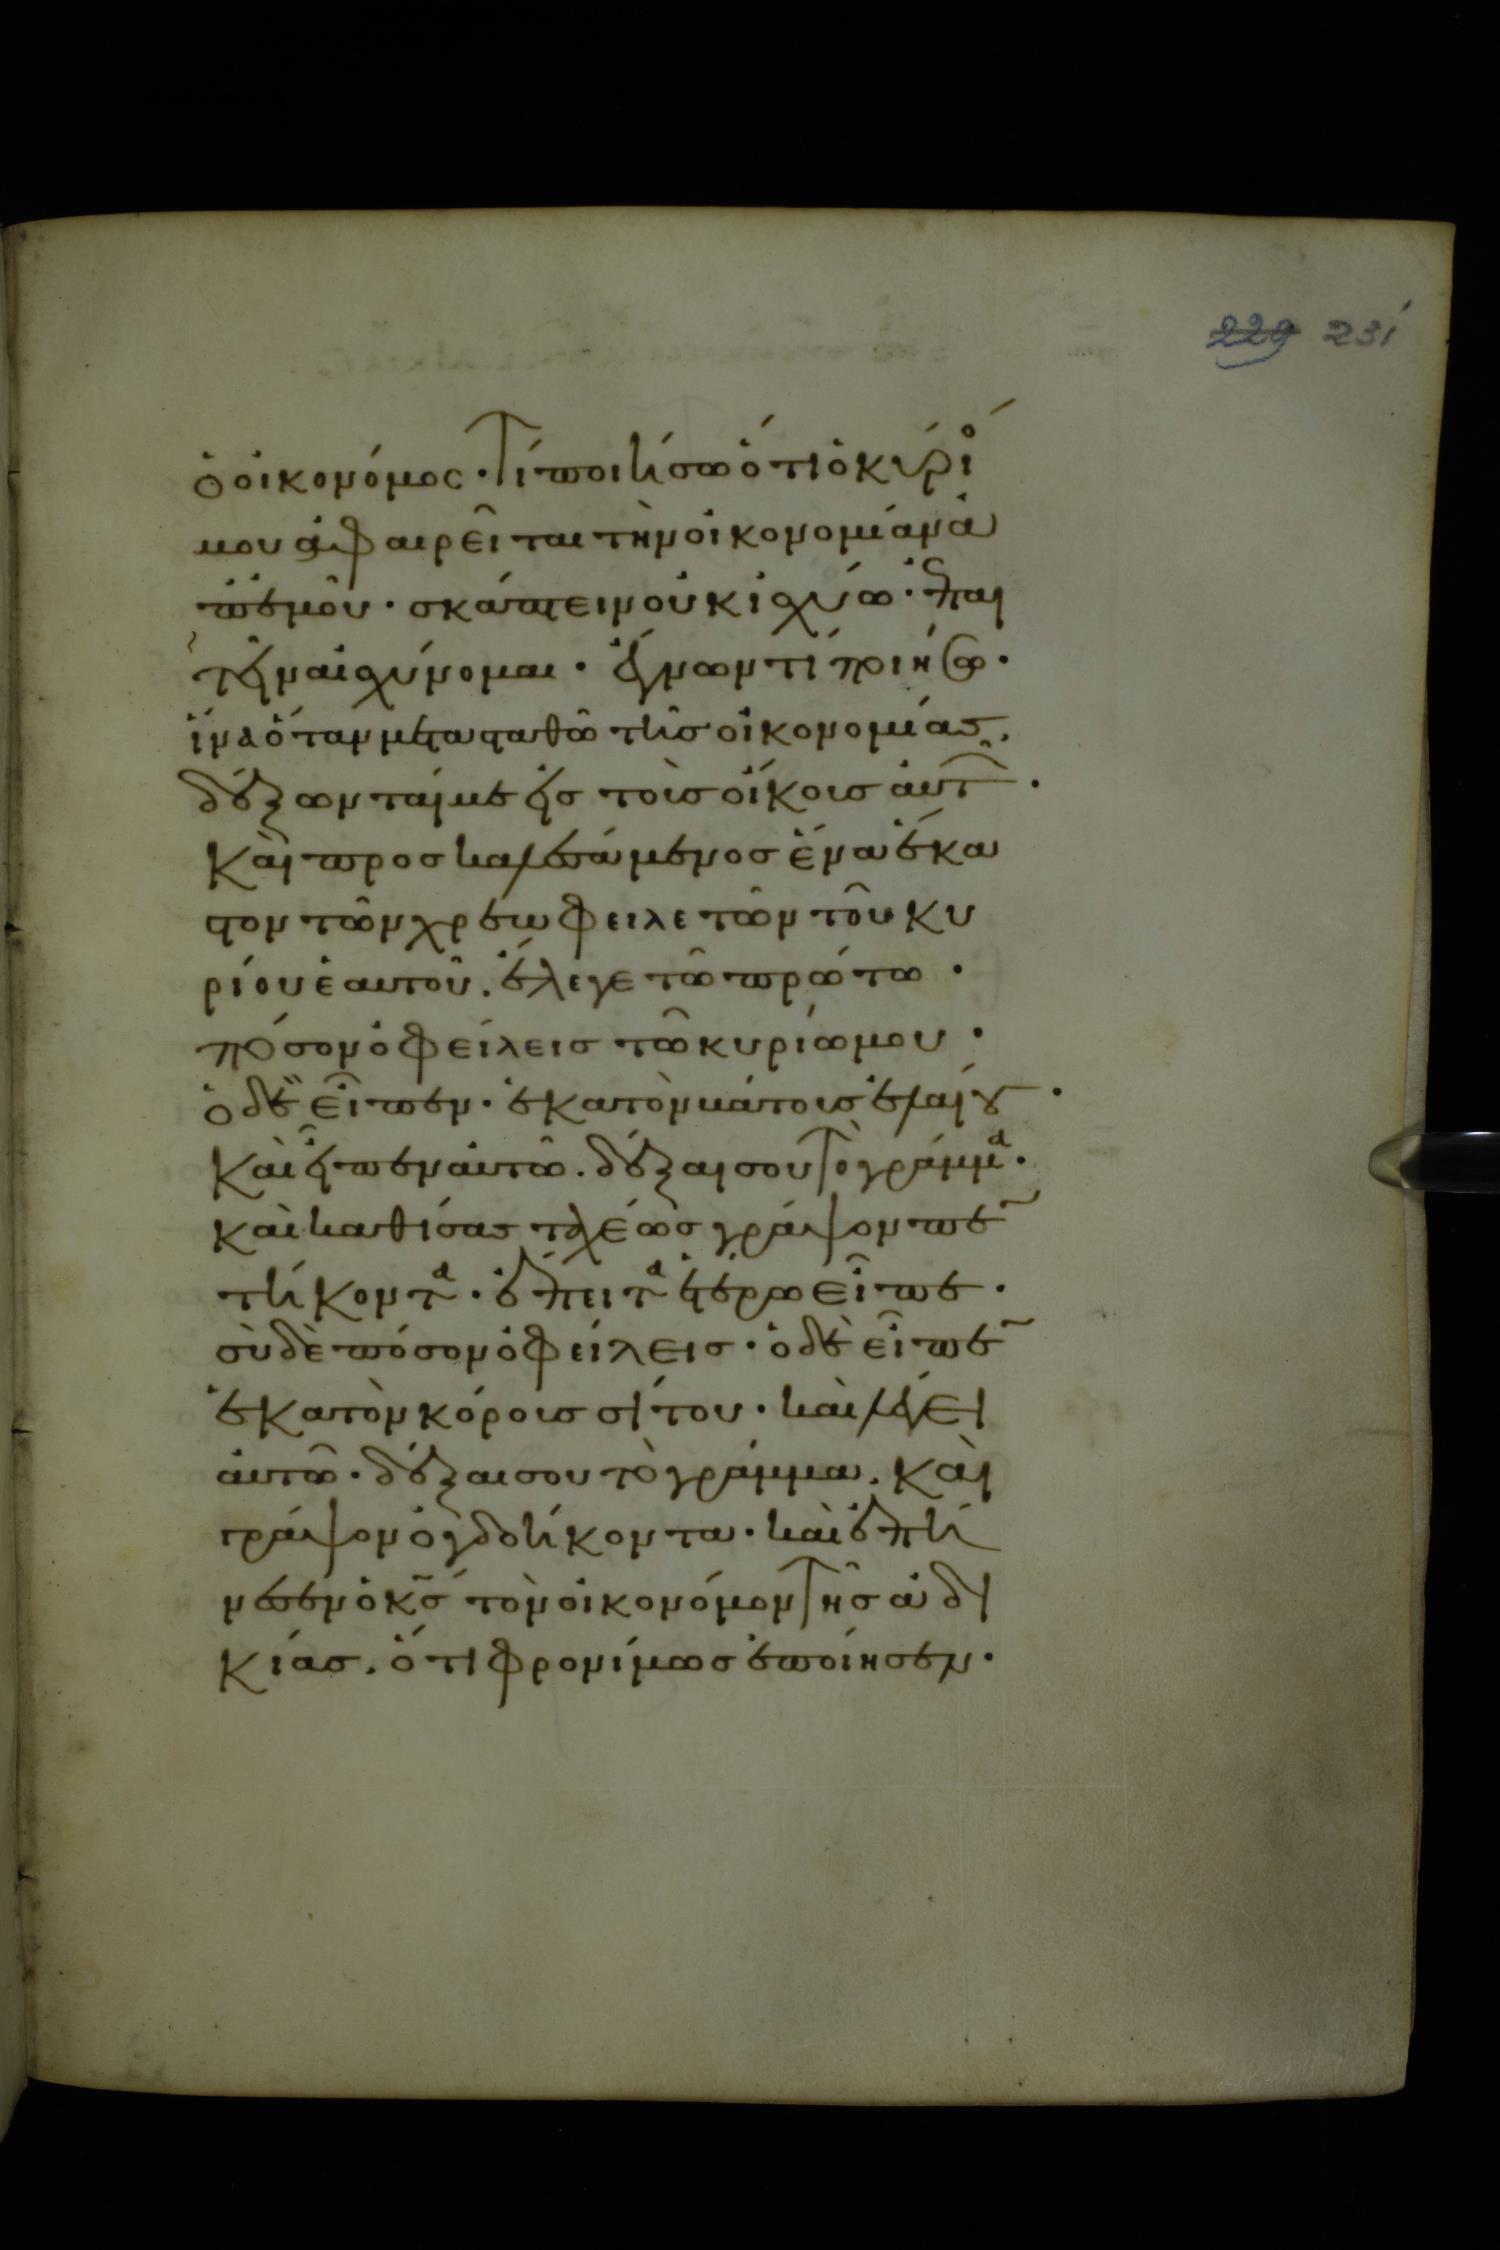 229 231
ὁ οἰκονόμος· Τί ποιήσω ὅτι ὁ κύριο
μου ἀφαιρεῖται τὴν οἰκονομίαν ἀ
π' ἐμοῦ· σκάπτειν οὐκ ἰσχύω· ἐπαι
τεῖν αἰσχύνομαι· ἔγνων τί ποιήσω·
ἵνα ὅταν μετασταθῶ τῆς οἰκονομίας,
δέξωνταί με εἰς τοὺς οἴκους αὐτῶν·
Καὶ προσκαλεσάμενος ἕνα ἕκα
στον τῶν χρεωφειλετῶν τοῦ κυ
ρίου ἑαυτοῦ. ἔλεγε τῶ πρώτω·
πόσον ὀφείλεις τῶ κυρίω μου·
ὁ δὲ εἶπεν· ἑκατὸν βάτους ἐλαίου·
Καὶ εἶπεν αὐτῶ. δέξαι σου τὸ γράμμα·
καὶ καθίσας ταχέως γράψον πε
τήκοντα· ἔπειτα ἑτέρω εἶπε·
σὺ δὲ πόσον ὀφείλεις· ὁ δὲ εἶπε
ἑκατὸν κόρους σίτου· καὶ λέγει
αὐτῶ· δέξαι σου τὸ γράμμα. Καὶ
γράψον ὀγδοήκοντα· καὶ ἐπή
νεσεν ὁ κς τὸν οἰκονόμον τῆς ἀδι
κίας. ὅτι φρονίμως ἐποίησεν·